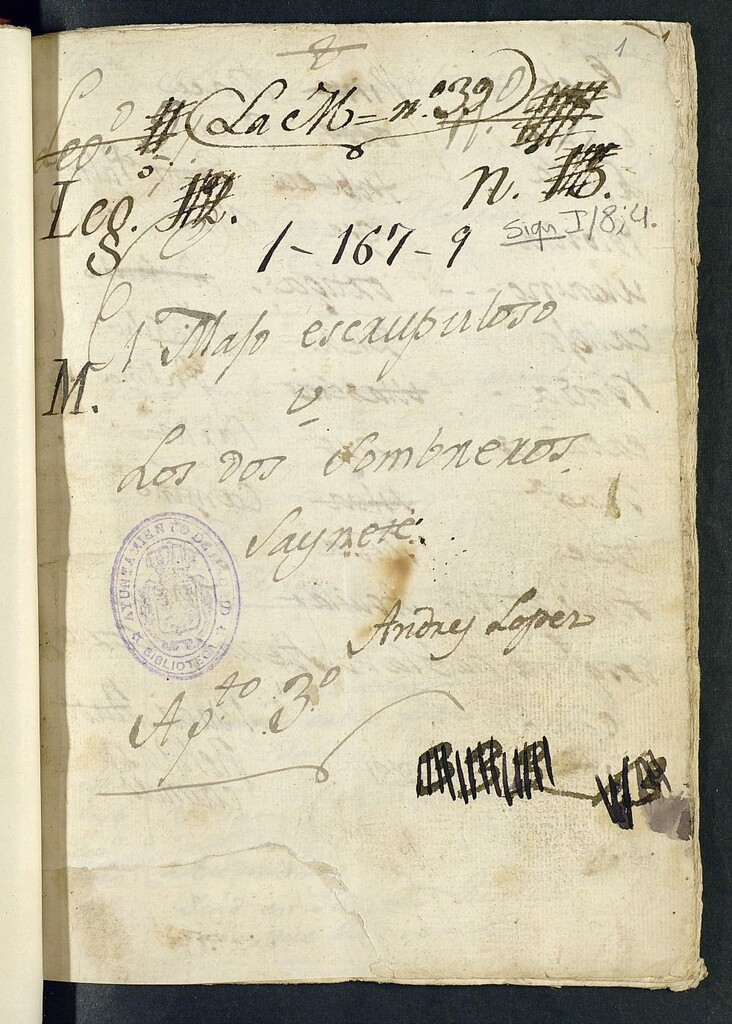 1
Leg.º (La M = n.º 39)
Leg.º 12. n. 13.
1-167-9 Sign I/8;4.
El Majo escrupuloso
M.
y
Los dos Sombreros.
Saynete.
AYUNTAMIENTO DE MADRID
BIBLIOTECA
Andres Lopez
Ap.to 3.º